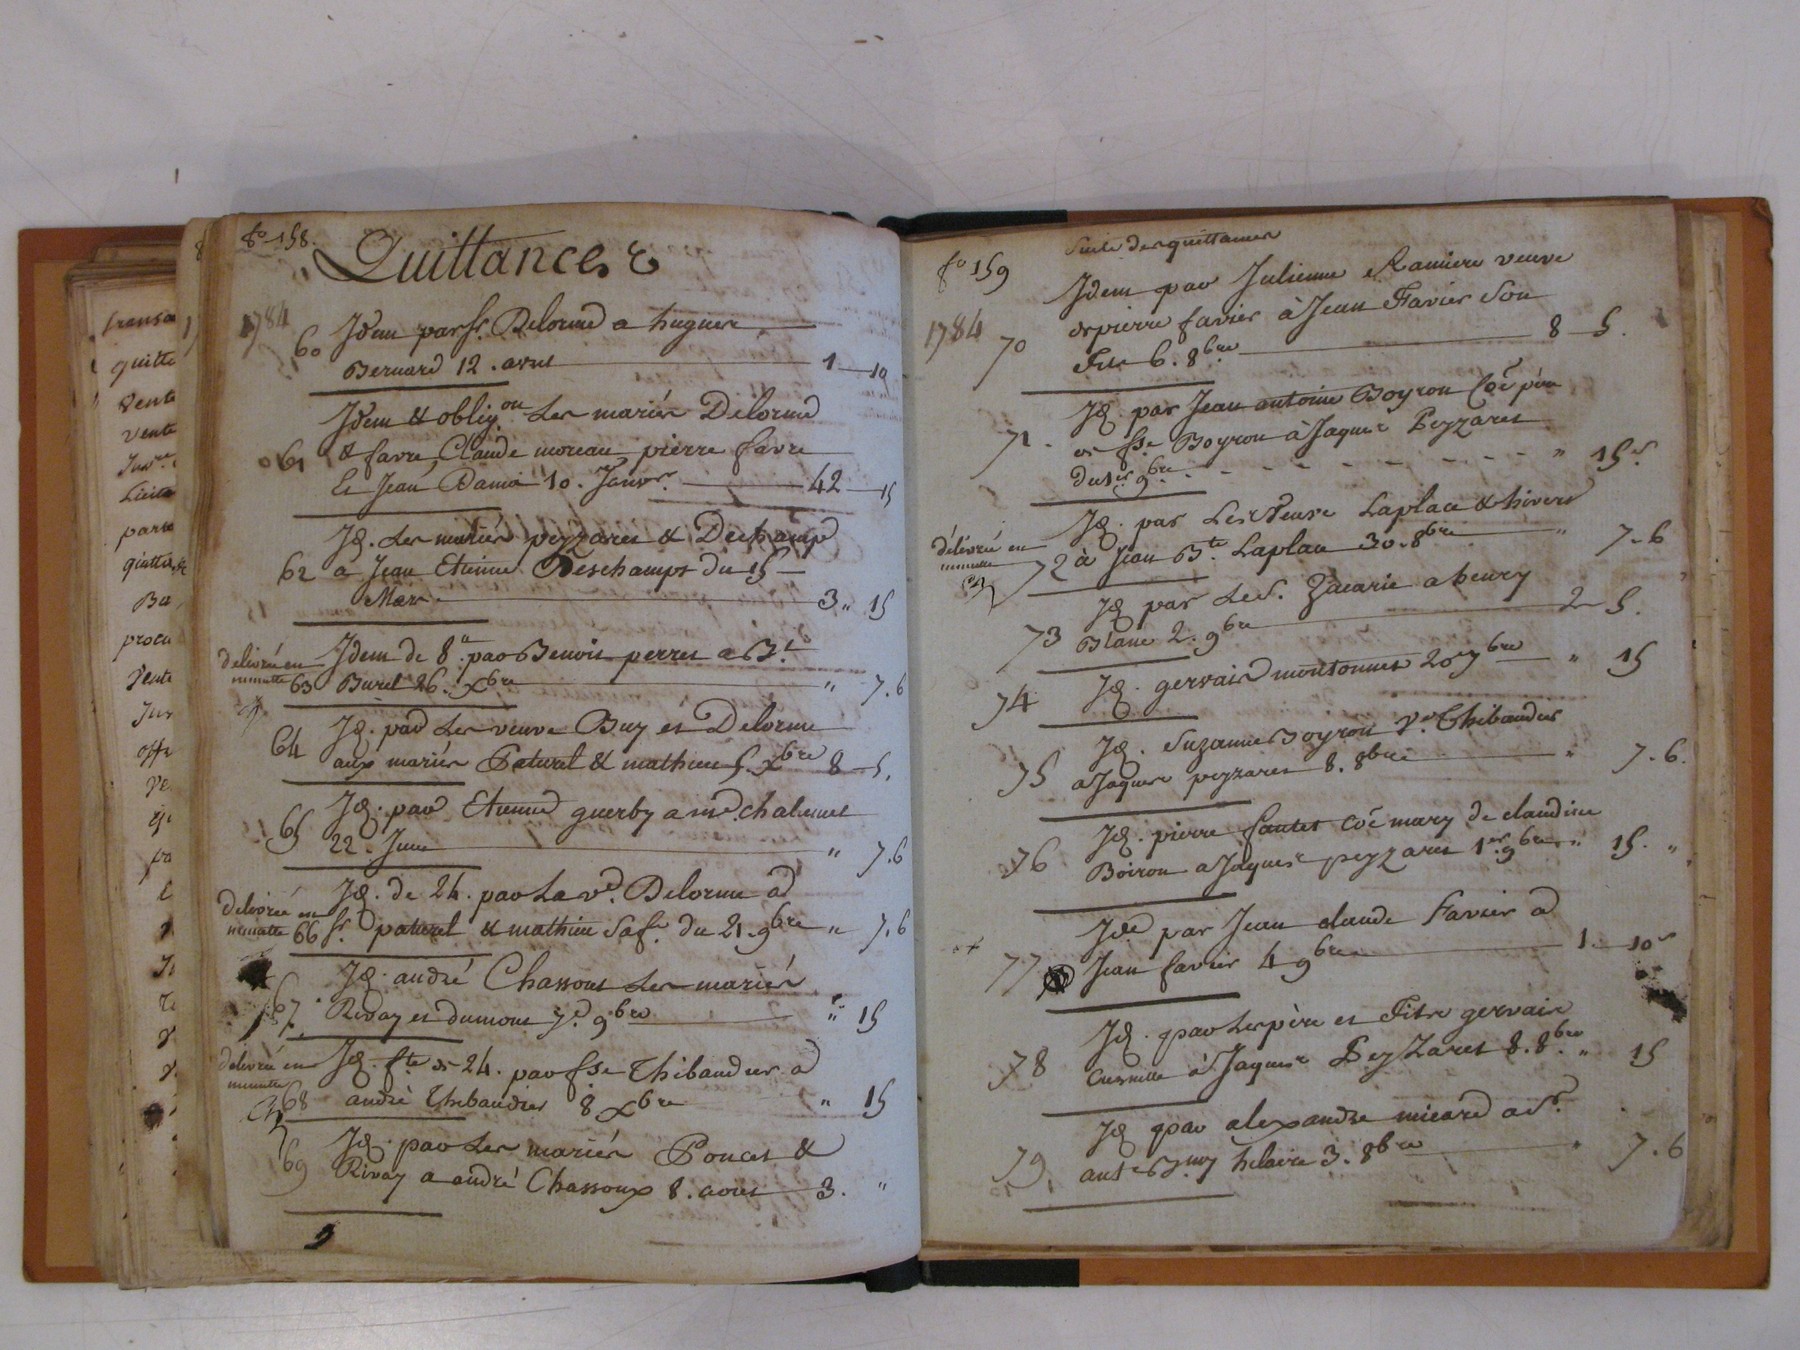 fo 158.
Quittances &
1784
60 Idem par sr. Delorme a hugues
Bernard 12. avril 1 10
Idem & oblig.on Les mariés Delorme
61 & favre, Claude moreau, pierre favre
Et Jean Damié 10. Janvr. 42 15
Id. Les mariés peyzaret & Dechamp
62 a Jean Etienne Deschamps du 15
Mars 3 „ 15
délivrée en Idem de 8.. par Benoit perret a Bt.
minutte 63 Buret 26. Xbre „ 7.6
64 Id. par Les veuve Buy et Delorme
aux mariés Paturel & mathieu 5. Xbre 8 5.
Id. par Etienne guerby a md. chalumet
65 22. Juin „ 7.6
Id. de 24. par La ve. Delorme a
delivrée en
minutte 66 sr. paturel & mathieu sa fe. du 21. 9bre „ 7.6
Id. andré Chassoux Les mariés
67. Rivay et dumont 7. 9bre „ 15
délivrée en Id. fte de 24. par fse Thibaudier a
minutte
68 andré Thibaudier 8 Xbre „ 15
Id. par Les mariés Poncet &
69 Rivay a andré Chassoux 8. aout 3. „
fo 159
Suite des quittances
1784
Idem par Julienne Ramiere veuve
70 de pierre favier à Jean Favier Son
Fils 6. 8bre 8 5.
Id. par Jean antoine Boyron Coe père
71. de fse. Boyron à Jaques Peyzaret
du 1er 9bre „ 15s.
délivrée en Id. par Les veuve Laplace & hivert
minutte 72 à Jean Bte. Laplace 30. 8bre „ 7.6
Id par Le S. Zacarie a henry
73 Blanc 2. 9bre 2 5.
74 Id. gervais montonnet 20 7bre „ 15
Id. Suzanne Boyron ve. Thibaudier
75 a Jaques peyzaret 8. 8bre „ 7.6.
Id. pierre fautet coe mary de claudine
76 Boiron a Jaques peyzaret 1er. 9bre „ 15. „
Ide par Jean claude Favier a
77 Jean favier 4 9bre 1. 10s
Id. par Les père et Fils gervais
78 à Jaques PeyZaret 8. 8bre. „ 15
Id par alexandre micard a Sr.
79 hilaire 3. 8bre „ 7.6